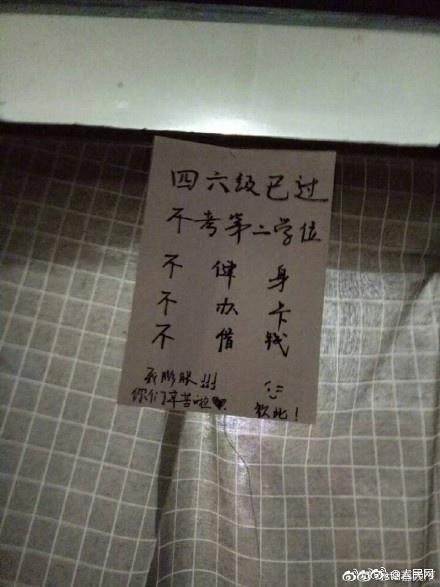 四六级已过
不考第二学位
不健身
不办卡
不借钱
我膨胀!!!
你们辛苦啦
钦此!
@人民网